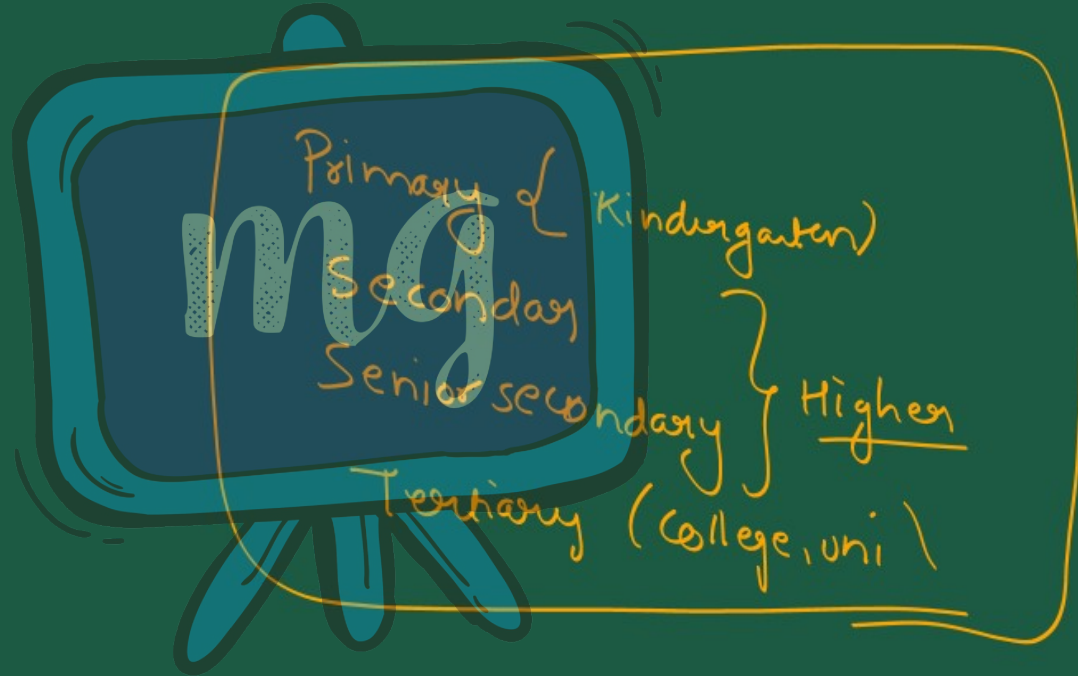 Primary { Kindergarten)
mg
Secondary
Senior secondary } Higher
Tertiary (College, uni \